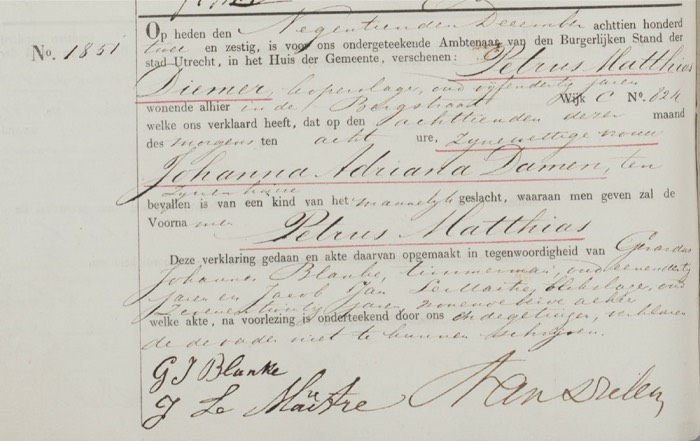 No. 1851
Op heden den Negentienden December achttien honderd
twee en zestig, is voor ons ondergeteekende Ambtenaar van den Burgerlijken Stand der
stad Utrecht, in het Huis der Gemeente, verschenen: Petrus Matthias
Diemer, koperslager, oud vijfendertig jaren
wonende alhier in de Bergstraat Wijk C No. 824
welke ons verklaard heeft, dat op den achttienden dezer maand
des morgens ten acht ure, zyne wettige vrouw
Johanna Adriana Damen, ten
zynen huize
bevallen is van een kind van het mannelyk geslacht, waaraan men geven zal de
Voornamen Petrus Matthias
Deze verklaring gedaan en akte daarvan opgemaakt in tegenwoordigheid van Gerardus
Johannes Blanke, timmerman, oud eenendertig
jaren en Jacob Jan LeMaitre, blikslager, oud
zevenentwintig jaren, wonende alhier
welke akte, na voorlezing is onderteekend door ons en de getuigen, verklarende
de vader niet te kunnen schryven.
G J Blanke
J Le Maitre